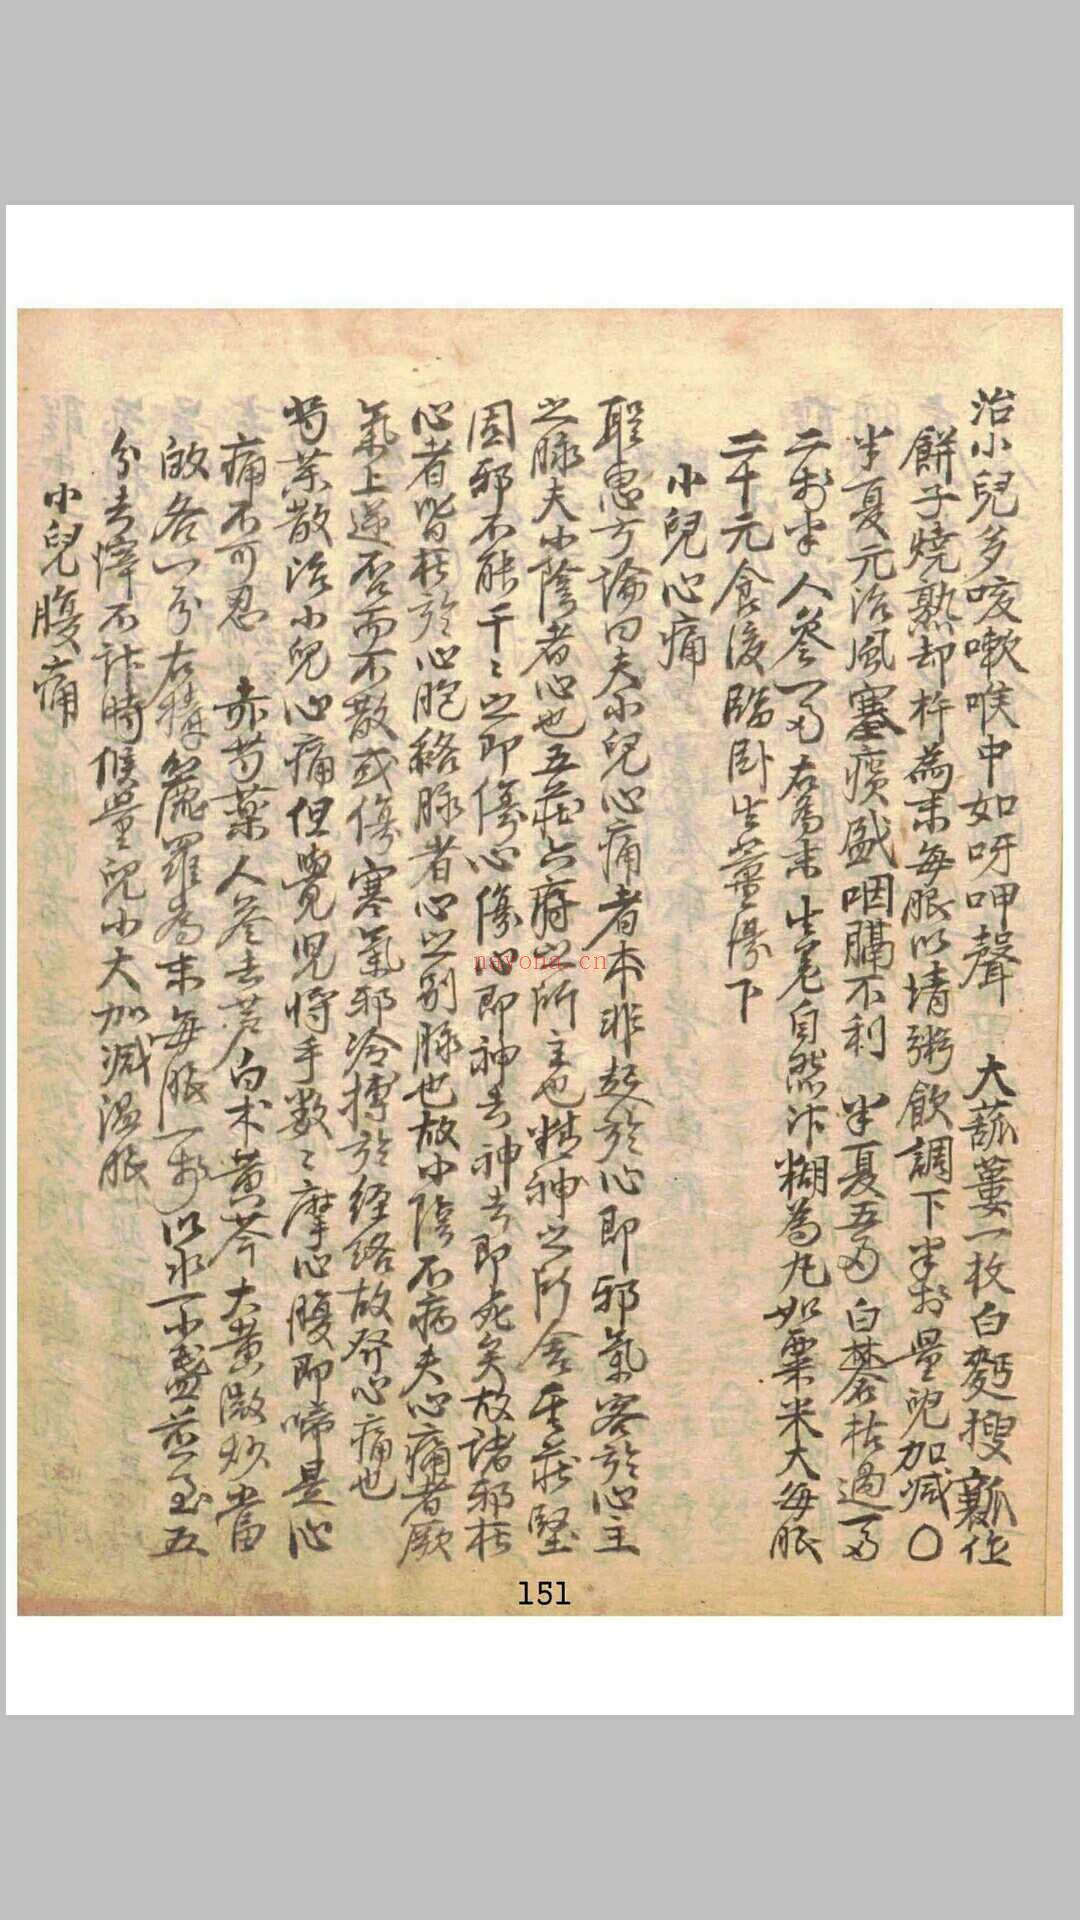 治小兒多咳嗽喉中如呀呷聲　大蓏蔞一枚白麪搜瓤位
餅子燒熟却杵為末每服以清粥飲調下半錢量兒加減〇
半夏元治風壅痰盛咽膈不利　半夏五兩　白礬枯過一兩
二錢半　人參一兩　右為末生薑自然汁糊為丸如粟米大每服
二十元食後臨卧生薑湯下
小兒心痛
聖惠方論曰夫小兒心痛者本非起於心即邪氣客於心主
之脉夫小陰者心也五藏六府之所主也精神之所舍其藏堅
固邪不能干〻之即傷心傷心即神去神去即死矣故諸邪在
心者皆在於心胞絡脉者心之别脉也故小陰不病夫心痛者厥
氣上逆否而不散或傷寒氣邪冷搏於経絡故發心痛也
芍藥散治小兒心痛但覺兒将手數〻摩心腹即啼是心
痛不可忍　赤芍藥　人參去芦　白术　黄芩　大黄微炒　當
各一分　右擣麁羅為末每服一錢以水一小盞煎至五
分去滓不計時候量兒小大加減温服
小兒腹痛
nayona.cn
151